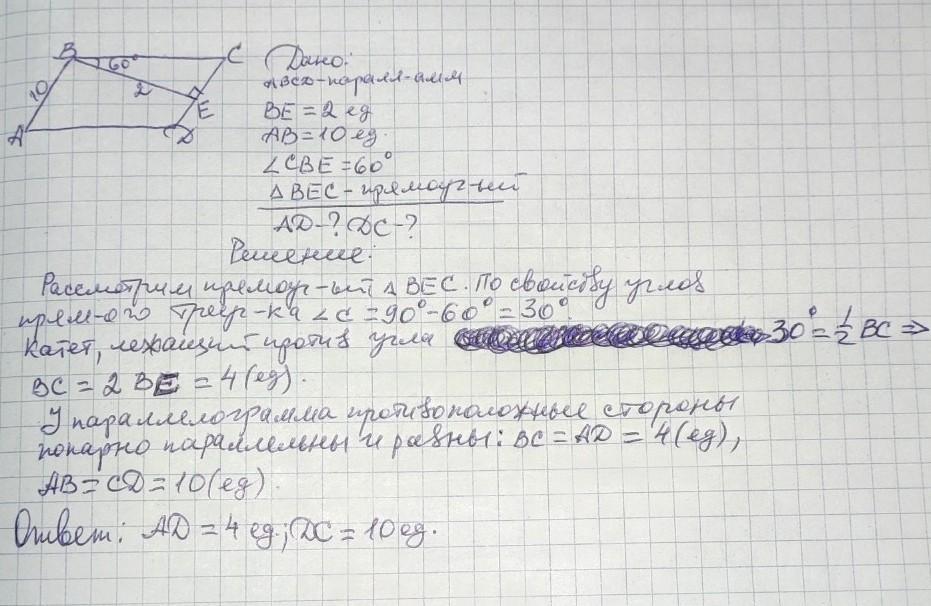 B 60° C
10 2
E
A D
Дано:
ABCD-паралл-амм
BE = 2 ед
AB = 10 ед.
∠CBE = 60°
△BEC - прямоуг-ый
AD-? DC-?
Решение:
Рассмотрим прямоуг-ый △BEC. По свойству углов
прям-ого треуг-ка ∠C = 90° - 60° = 30°.
Катет, лежащий против угла 30° = 1/2 BC ⇒
BC = 2 BE = 4 (ед).
У параллелограмма противоположные стороны
попарно параллельны и равны: BC = AD = 4 (ед),
AB = CD = 10 (ед).
Ответ: AD = 4 ед.; DC = 10 ед.